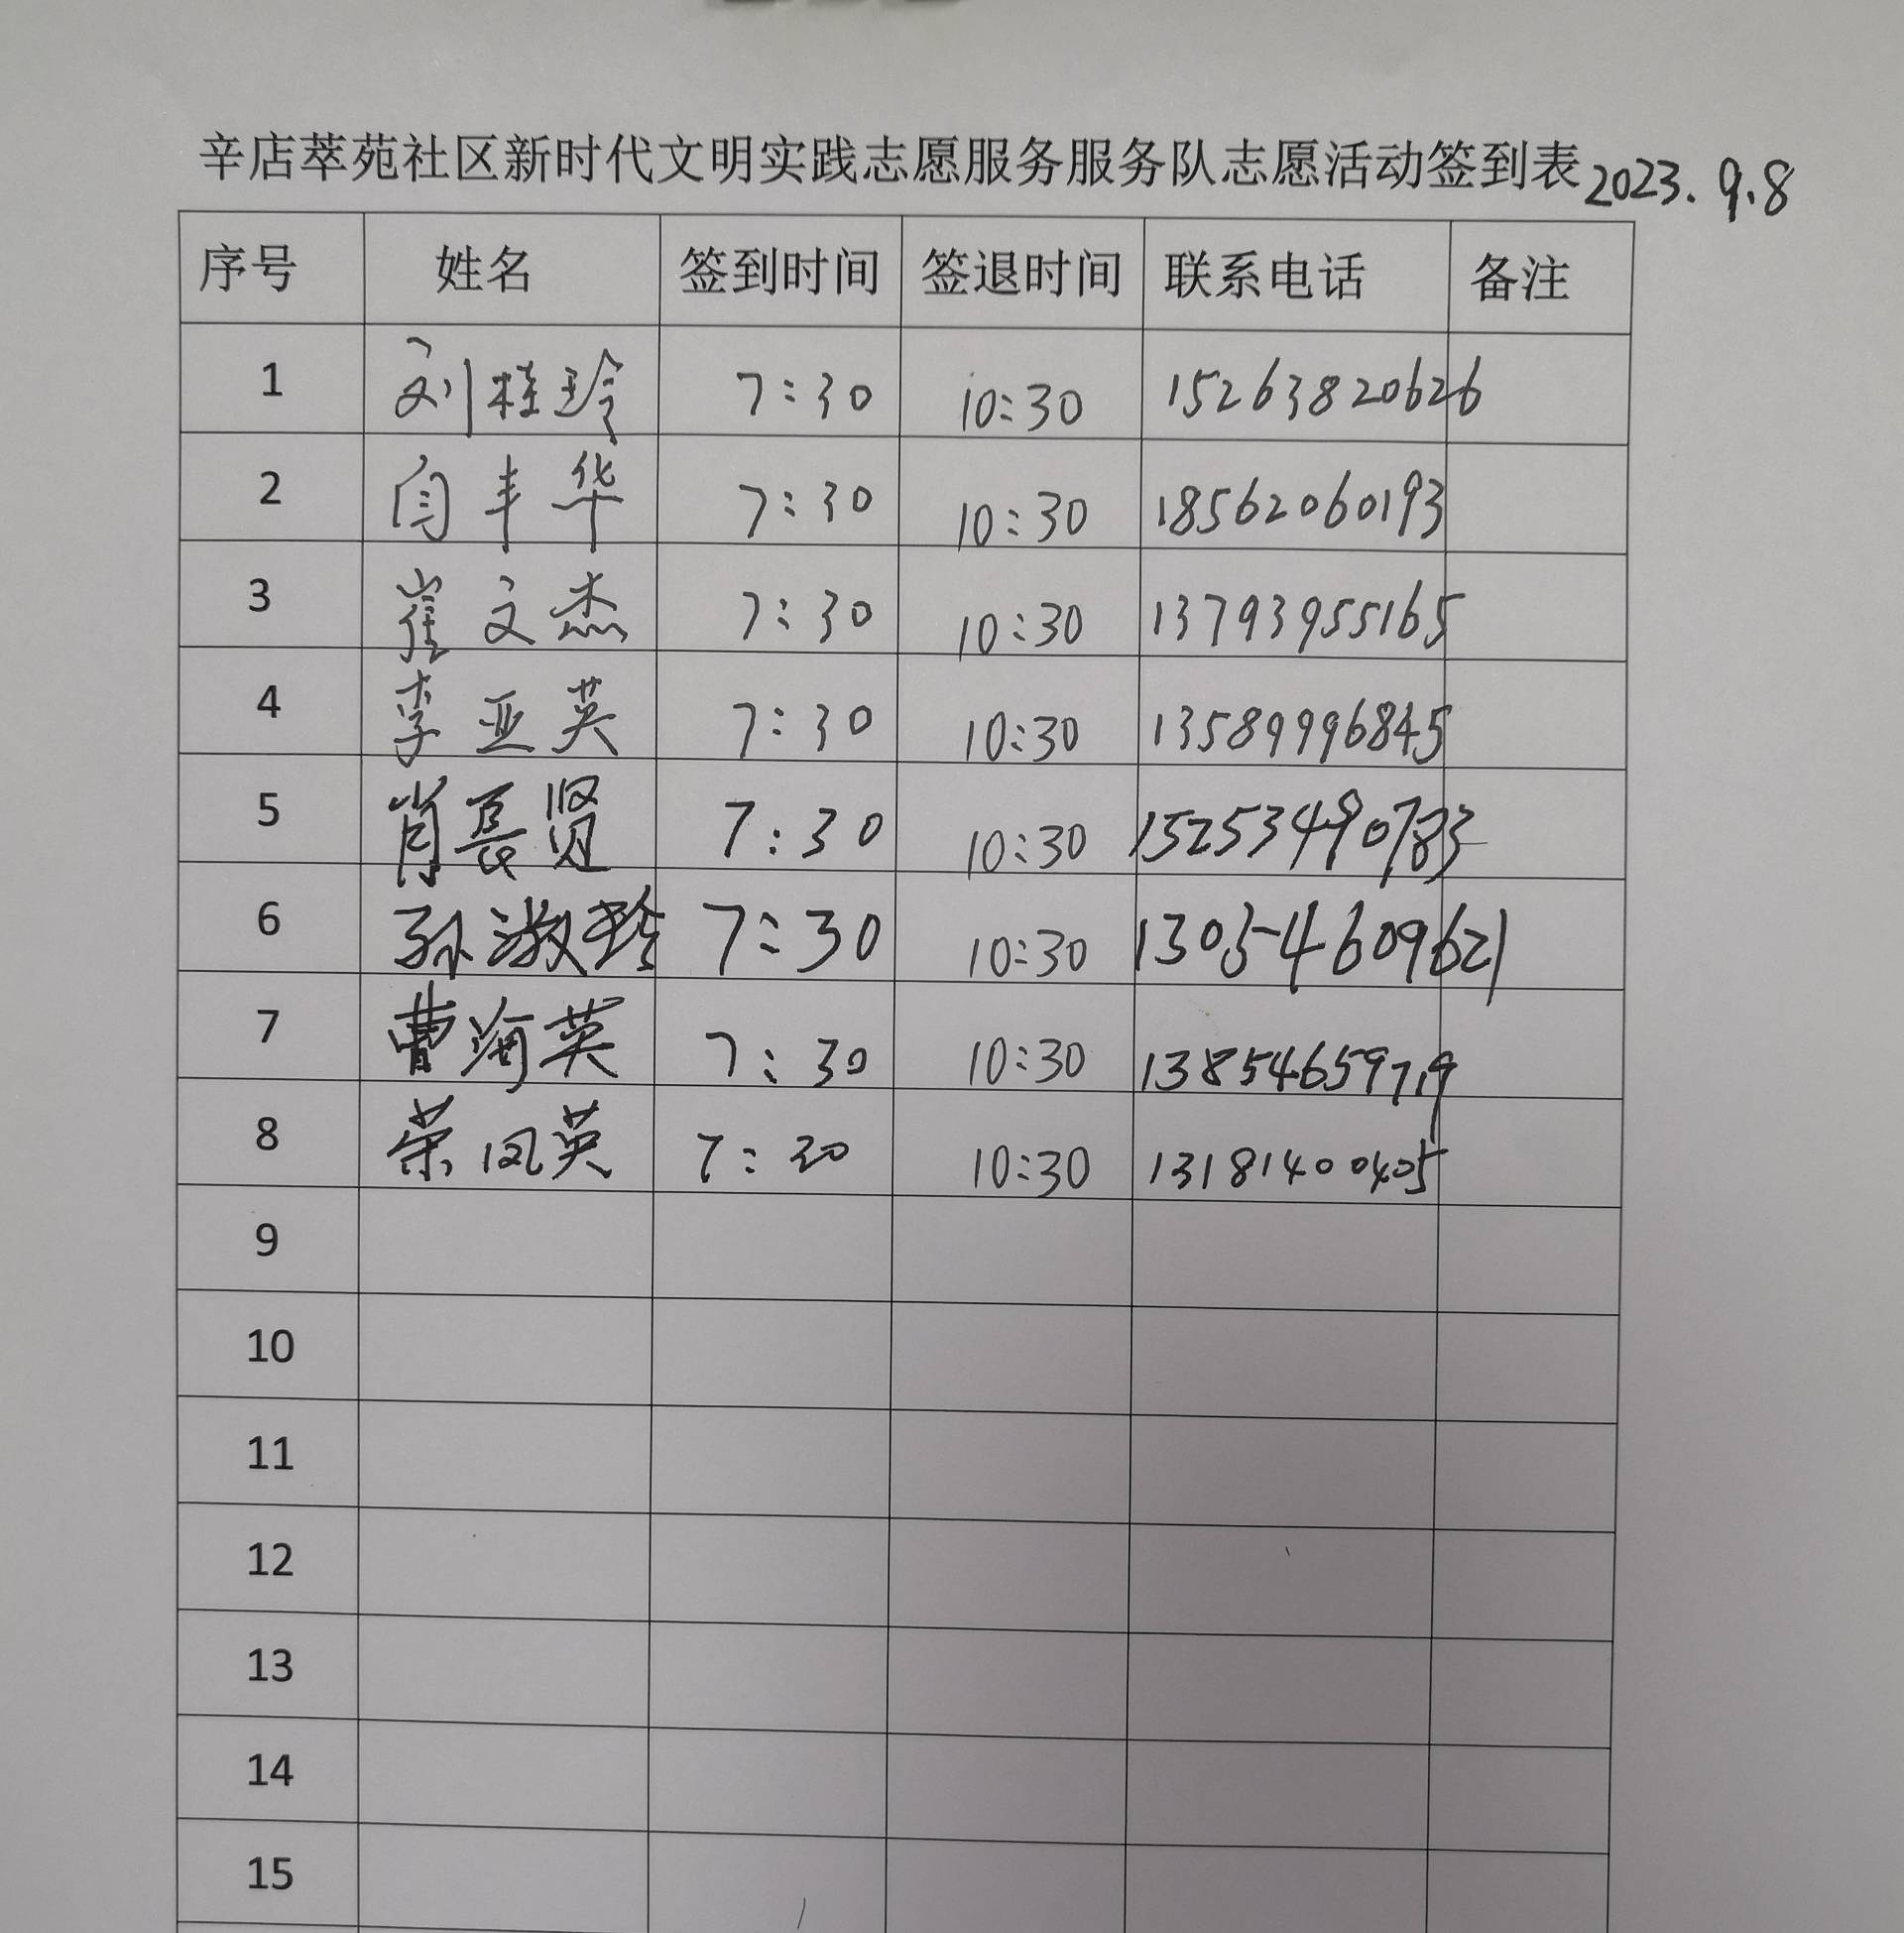 辛店萃苑社区新时代文明实践志愿服务服务队志愿活动签到表 2023.9.8
序号 姓名 签到时间 签退时间 联系电话 备注
1 刘桂玲 7:30 10:30 15263820626
2 闫丰华 7:30 10:30 18562060193
3 崔文杰 7:30 10:30 13793955165
4 李亚英 7:30 10:30 13589996845
5 肖 贤 7:30 10:30 15253490783
6 孙淑玲 7:30 10:30 13054609621
7 曹海英 7:30 10:30 13854659719
8 荣凤英 7:30 10:30 13181400405
9
10
11
12
13
14
15